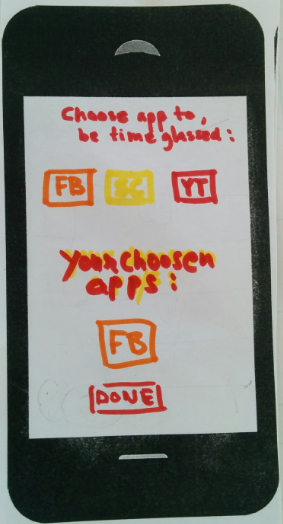 Choose app to,
be time glassed:
FB SC YT
Your choosen
apps:
FB
DONE